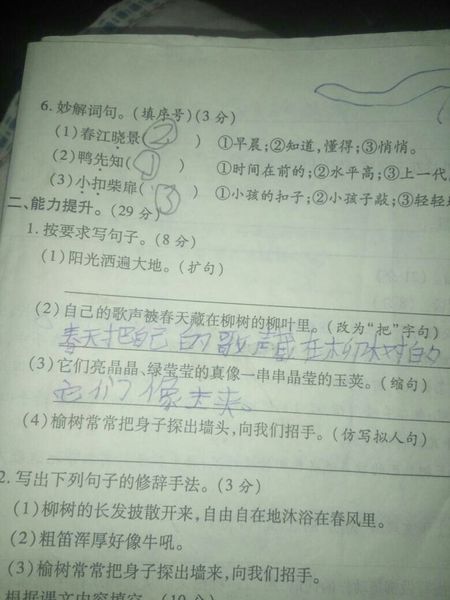 6.妙解词句。(填序号)(3分)
(1)春江晓景(②) ①早晨;②知道,懂得;③悄悄。
(2)鸭先知(①) ①时间在前的;②水平高;③上一代
(3)小扣柴扉(③) ①小孩的扣子;②小孩子敲;③轻轻
二、能力提升。(29分)
1.按要求写句子。(8分)
(1)阳光洒遍大地。(扩句)
(2)自己的歌声被春天藏在柳树的柳叶里。(改为“把”字句)
春天把自己的歌声藏在柳树的
(3)它们亮晶晶、绿莹莹的真像一串串晶莹的玉荚。(缩句)
它们像玉荚。
(4)榆树常常把身子探出墙头,向我们招手。(仿写拟人句)
2.写出下列句子的修辞手法。(3分)
(1)柳树的长发披散开来,自由自在地沐浴在春风里。
(2)粗笛浑厚好像牛吼。
(3)榆树常常把身子探出墙来,向我们招手。
根据课文内容填空。(10分)